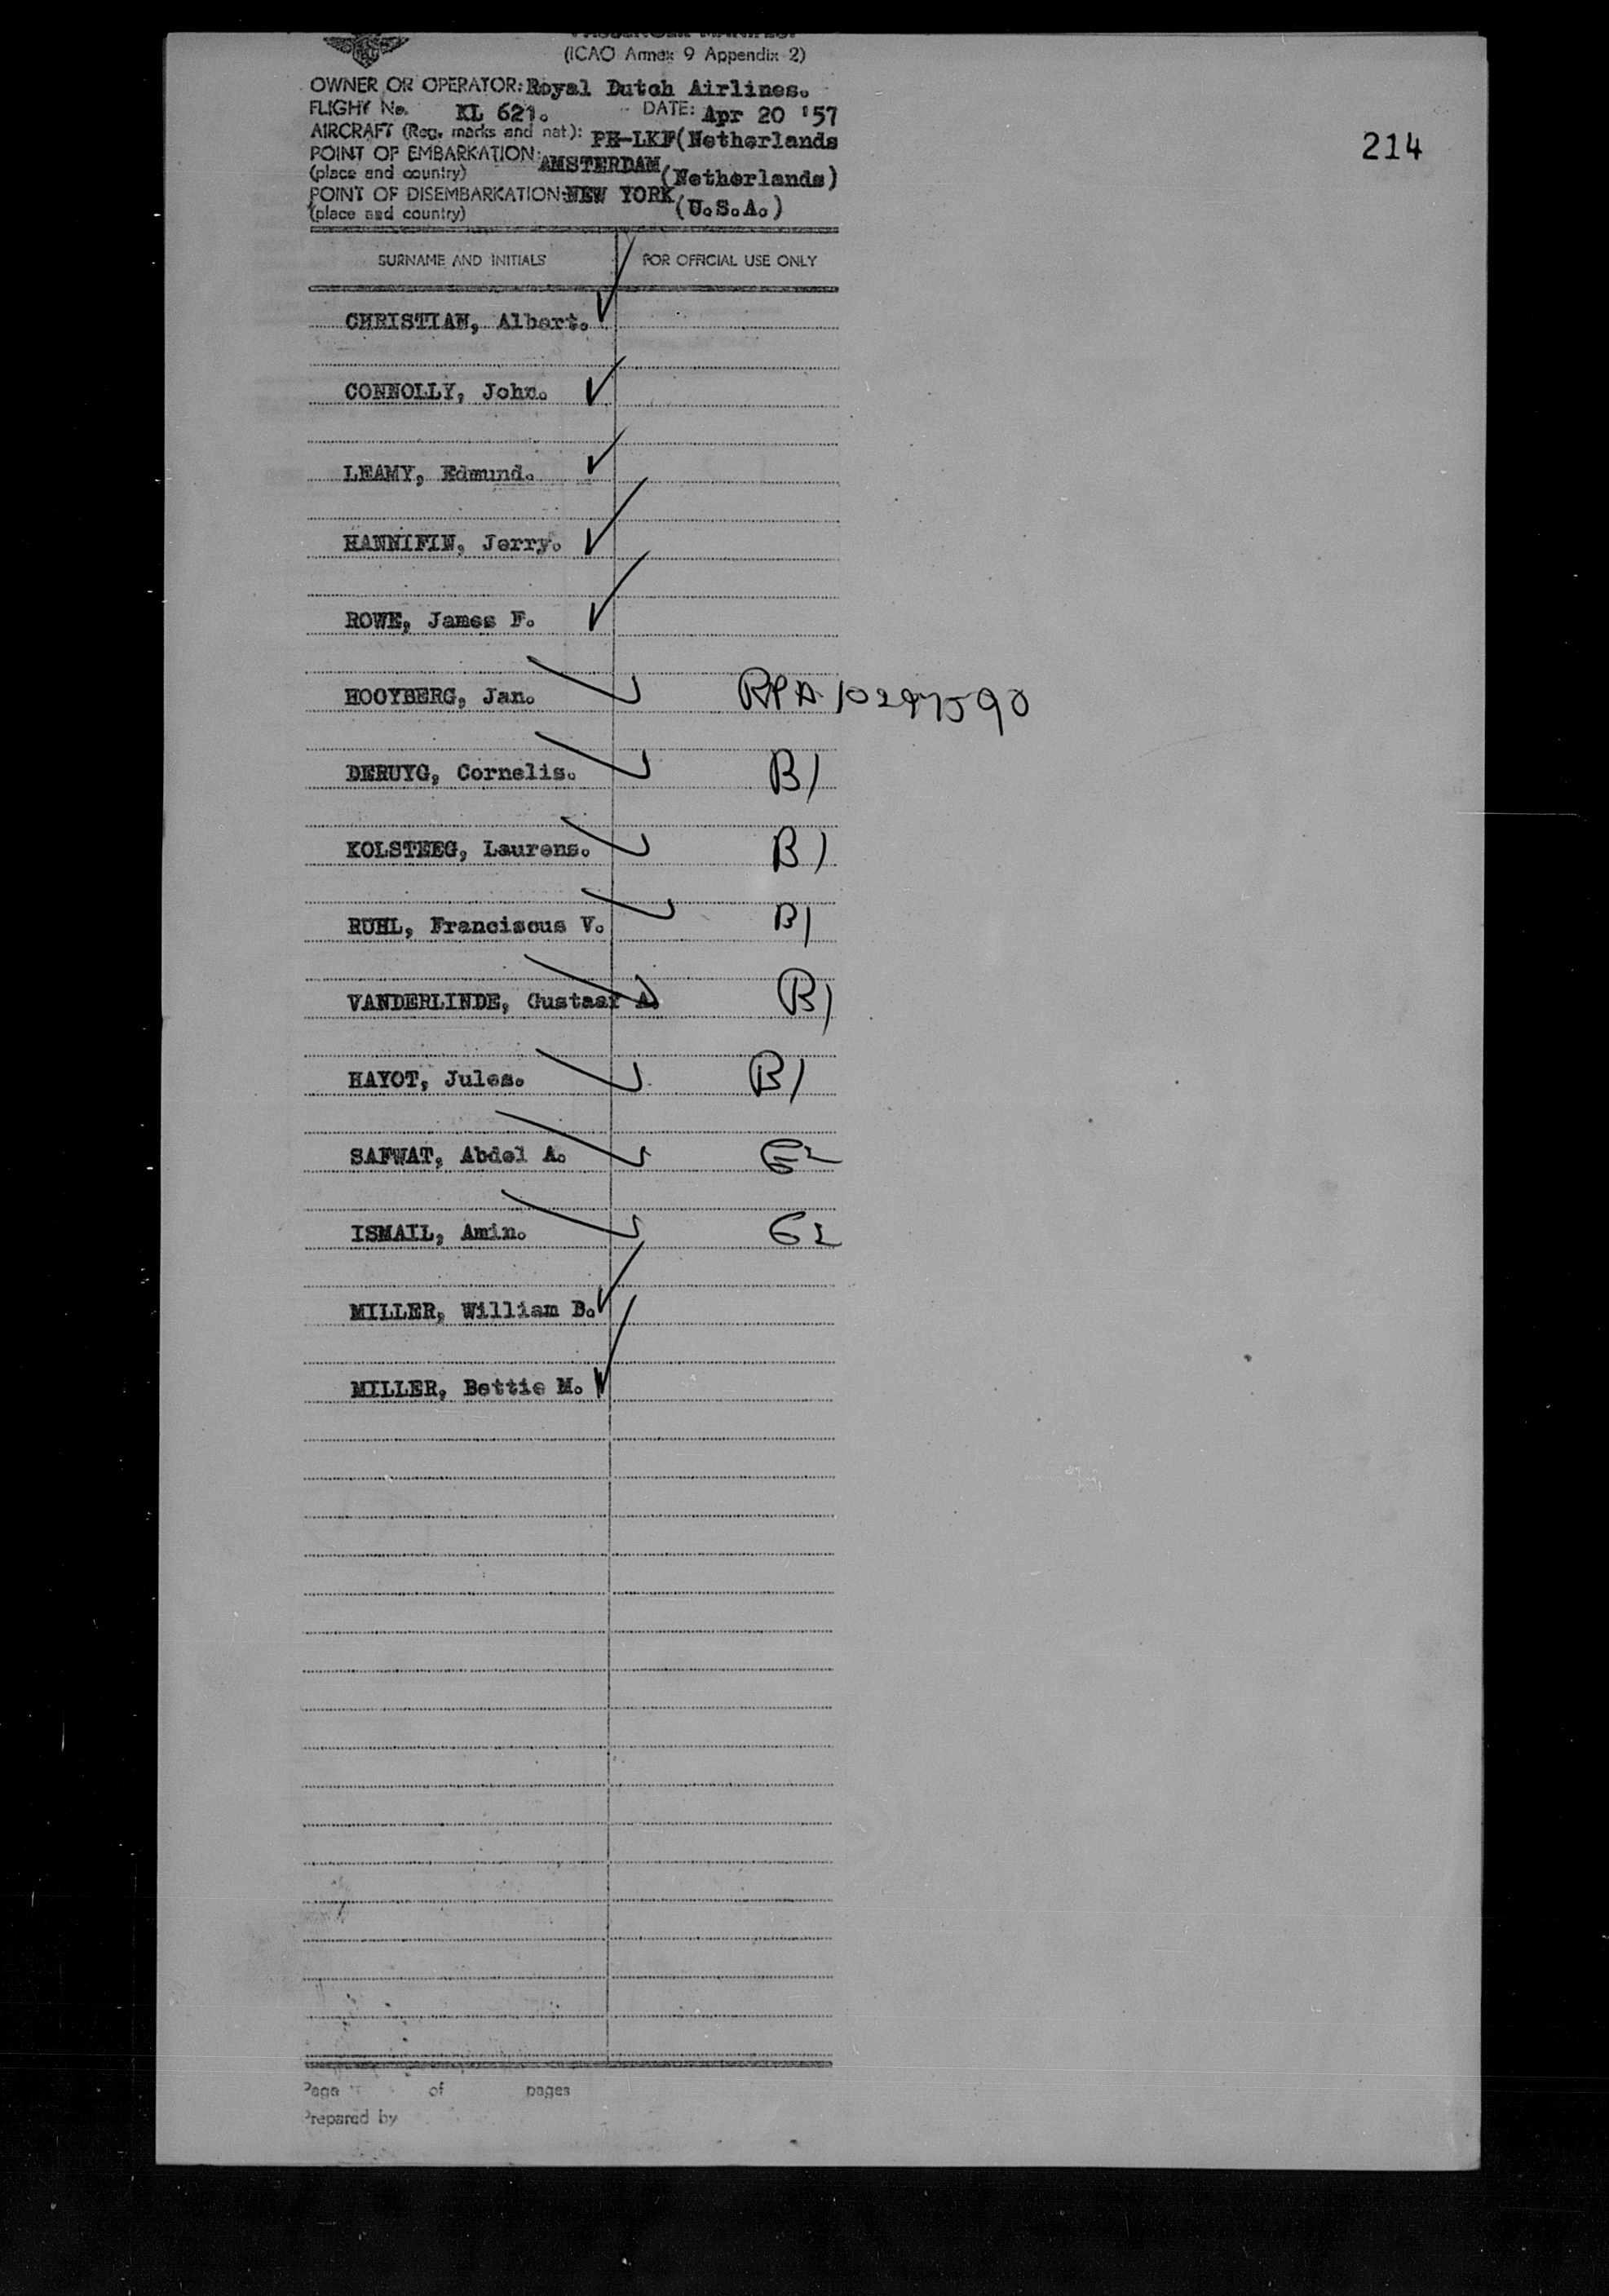 PASSENGER MANIFEST
(ICAO Annex 9 Appendix 2)
OWNER OR OPERATOR: Royal Dutch Airlines.
FLIGHT No. KL 621. DATE: Apr 20 '57
AIRCRAFT (Reg. marks and nat.): PH-LKF(Netherlands
POINT OF EMBARKATION: AMSTERDAM (Netherlands)
(place and country)
POINT OF DISEMBARKATION: NEW YORK (U.S.A.)
(place and country)
214
SURNAME AND INITIALS FOR OFFICIAL USE ONLY
CHRISTIAN, Albert.
CONNOLLY, John.
LEAMY, Edmund.
HANNIFIN, Jerry.
ROWE, James F.
HOOYBERG, Jan. RPA 10297590
DERUYG, Cornelis. B1
KOLSTEEG, Laurens. B1
RUHL, Franciscus V. B1
VANDERLINDE, Gustaaf A. B1
HAYOT, Jules. B1
SAFWAT, Abdel A. G2
ISMAIL, Amin. G2
MILLER, William B.
MILLER, Bettie M.
Page of pages
Prepared by